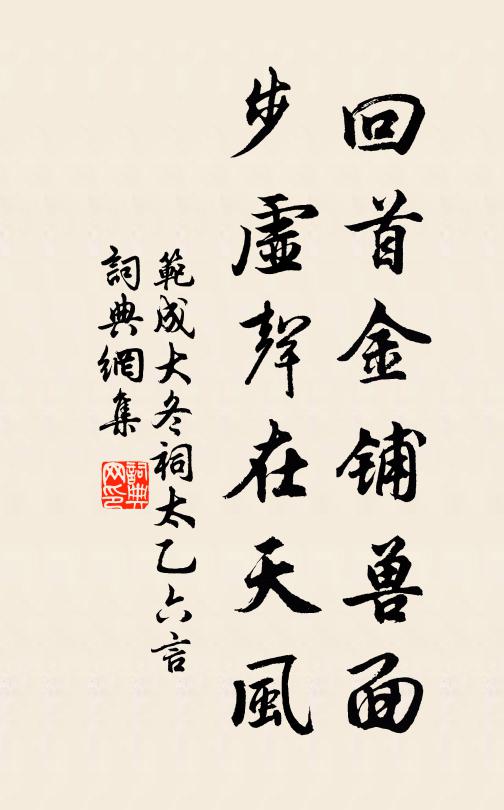 回首金铺兽面
步虛聲在天風
範成大冬祠太乙六言
詞典網集
詞典网印